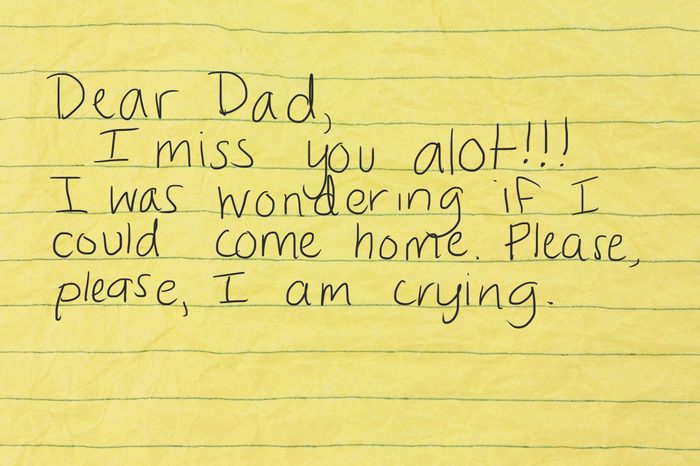 Dear Dad,
I miss you alot!!!
I was wondering if I
could come home. Please,
please, I am crying.